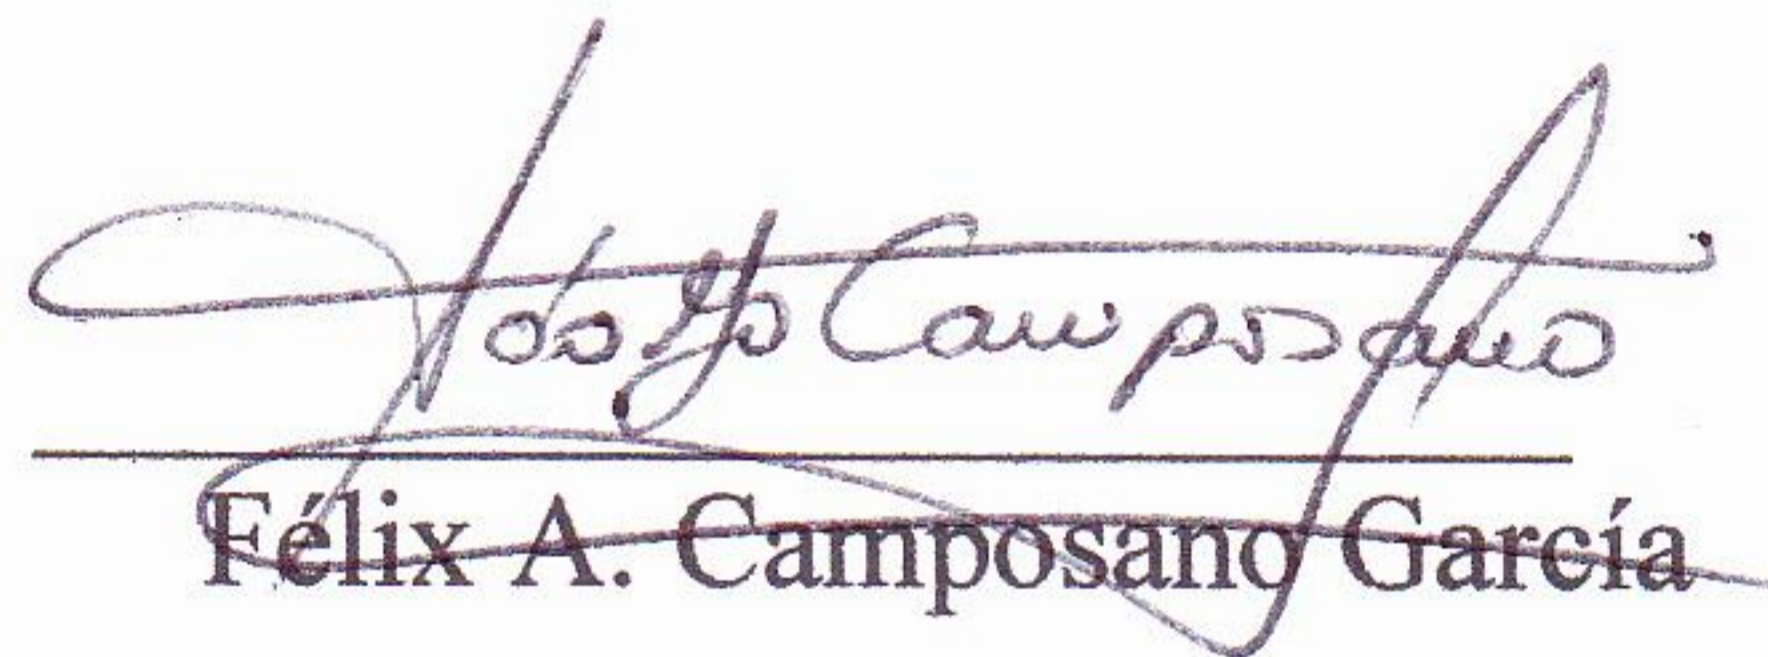 Adolfo Camposano
Félix A. Camposano García